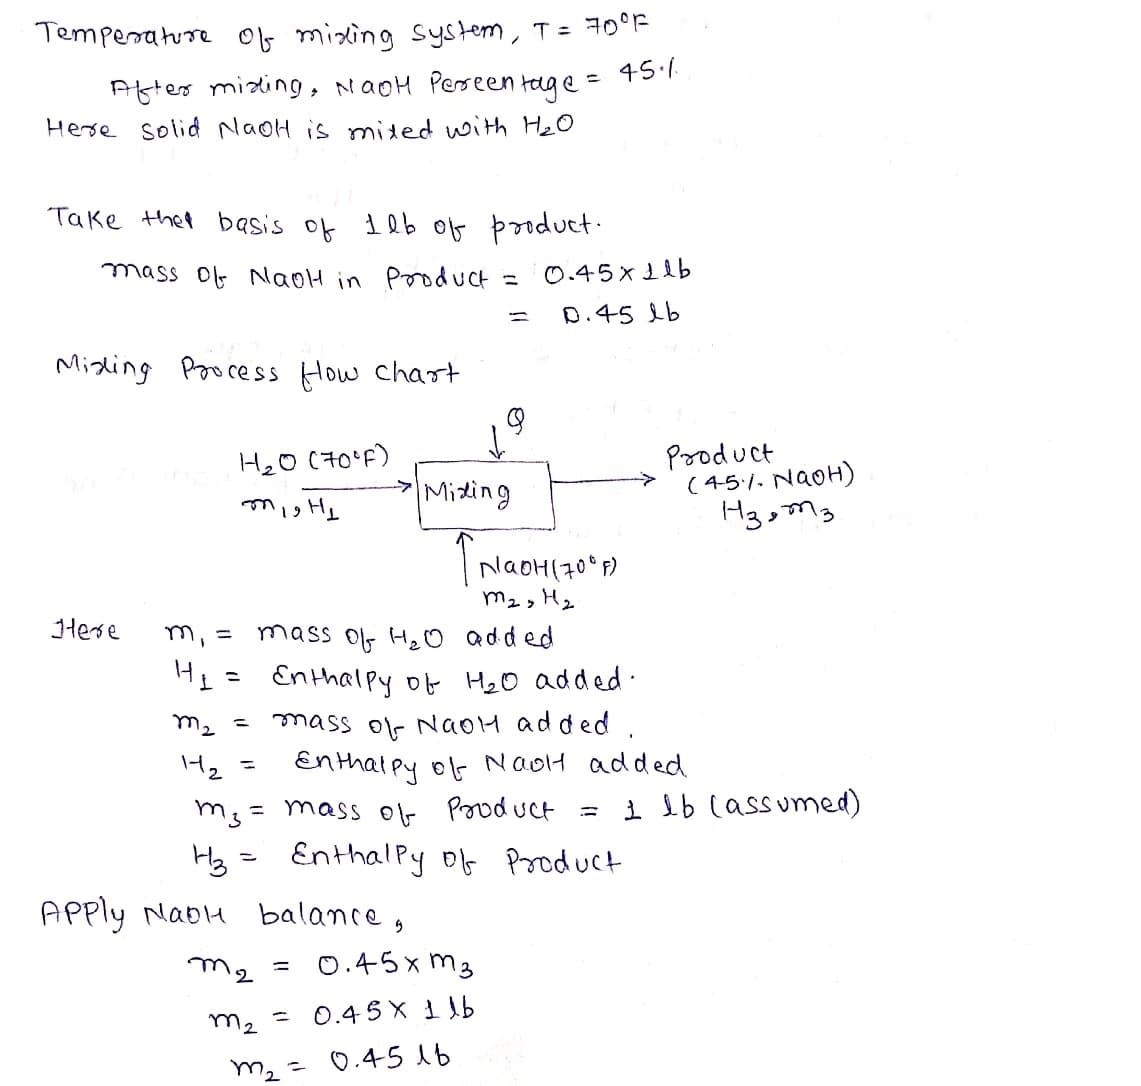 Temperature of mixing system, T = 70°F
After mixing, NaOH Percentage = 45%
Here solid NaOH is mixed with H₂O
Take the basis of 1 lb of product.
mass of NaOH in Product = 0.45 x 1 lb
= 0.45 lb
Mixing Process flow chart
Q
H₂O (70°F)
m₁, H₁
Mixing
Product
(45% NaOH)
H₃, m₃
NaOH (70°F)
m₂, H₂
Here m₁ = mass of H₂O added
H₁ = Enthalpy of H₂O added.
m₂ = mass of NaOH added
H₂ = Enthalpy of NaOH added
m₃ = mass of Product = 1 lb (assumed)
H₃ = Enthalpy of Product
Apply NaOH balance,
m₂ = 0.45 x m₃
m₂ = 0.45 x 1 lb
m₂ = 0.45 lb